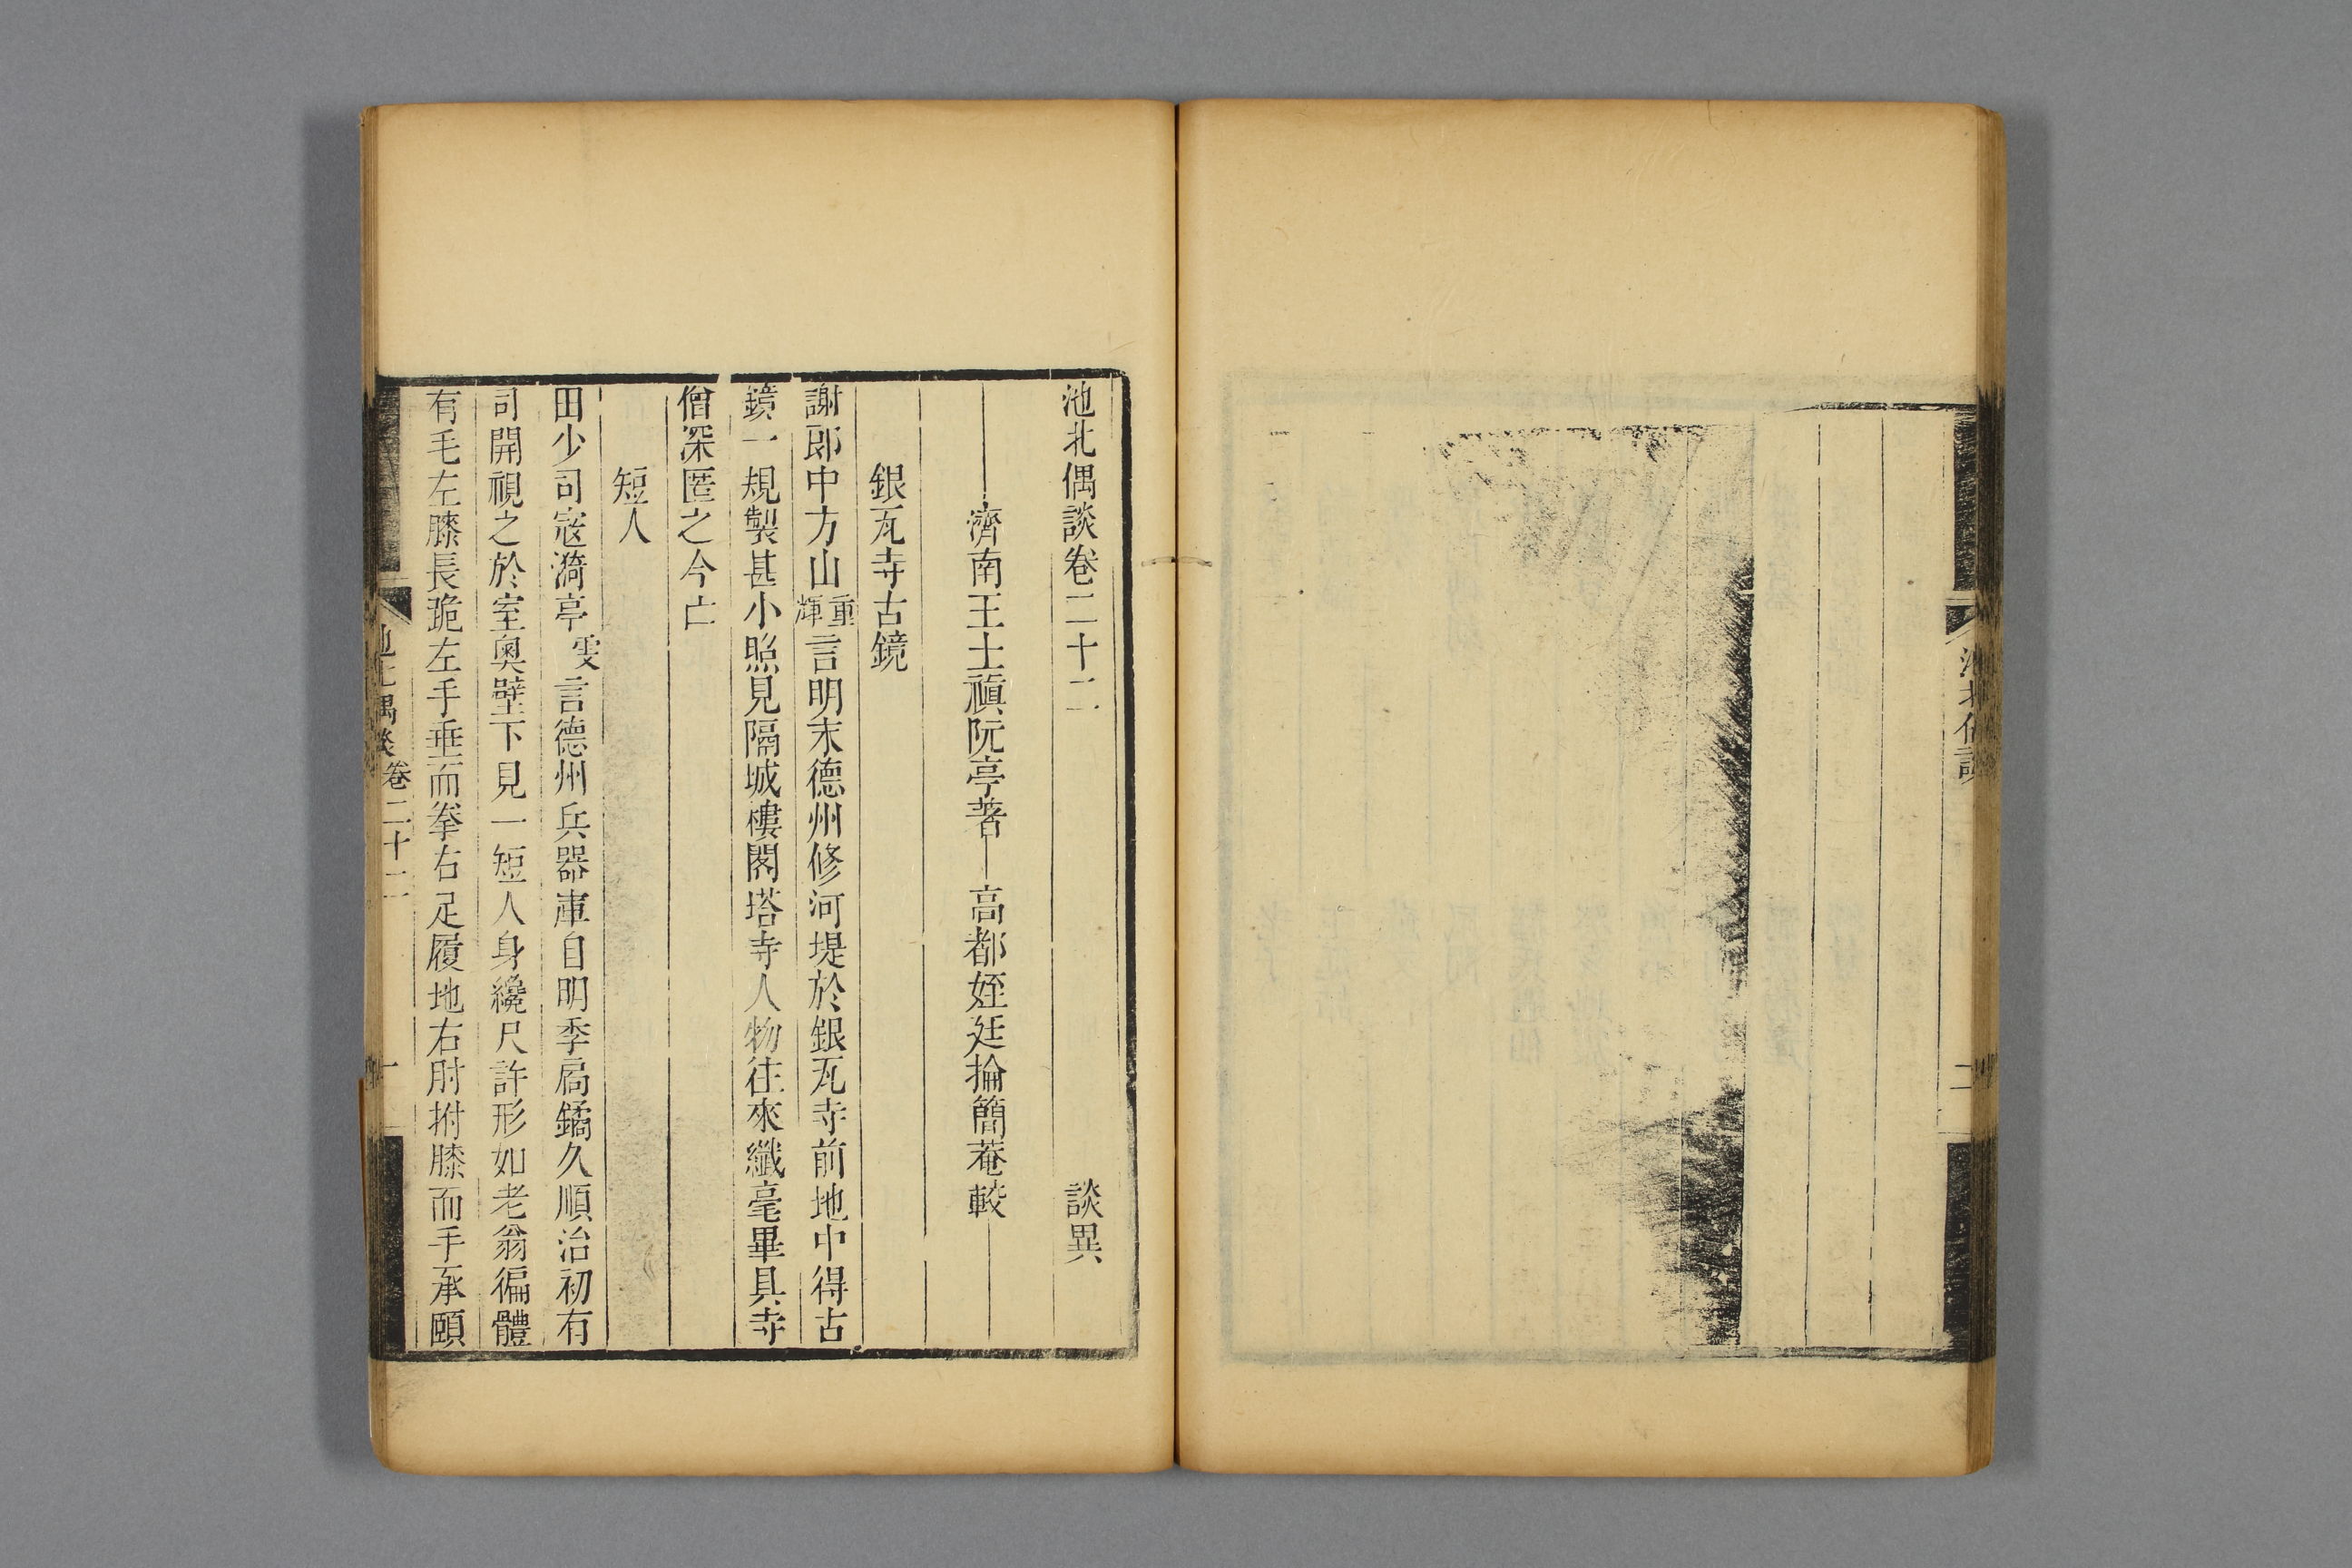 池北偶談
二
池北偶談卷二十二　談異
濟南王士禛阮亭著　高都姪廷掄簡菴較
銀瓦寺古鏡
謝郎中方山重輝言明末德州修河堤於銀瓦寺前地中得古
鏡一規製甚小照見隔城樓閣塔寺人物往來纖毫畢具寺
僧深匿之今亡
短人
田少司寇漪亭雯言德州兵器庫自明季扃鐍久順治初有
司開視之於室奧壁下見一短人身纔尺許形如老翁徧體
有毛左膝長跪左手垂而拳右足履地右肘拊膝而手承頤
池北偶談卷二十二
一